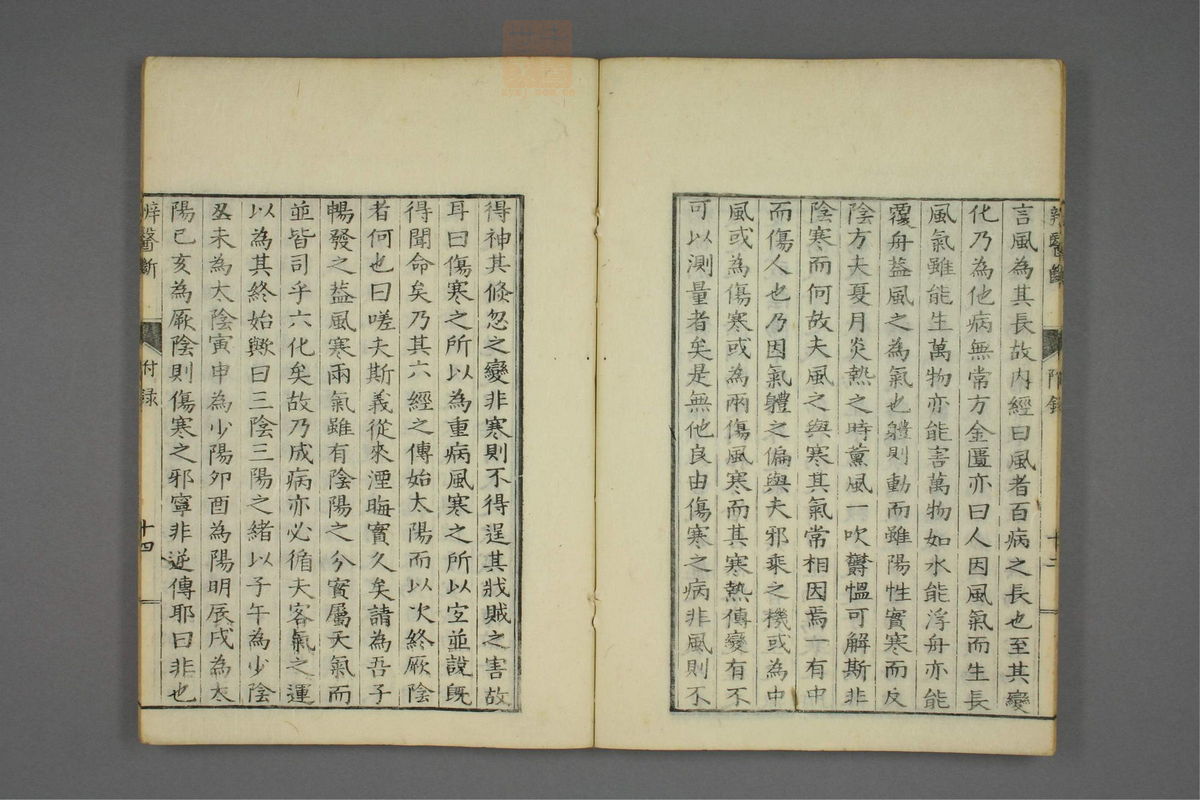 辨醫斷
附録
十三
言風為其長故内經曰風者百病之長也至其變
化乃為他病無常方金匱亦曰人因風氣而生長
風氣雖能生萬物亦能害萬物如水能浮舟亦能
覆舟蓋風之為氣也軆則動而雖陽性實寒而反
陰方夫夏月炎熱之時薫風一吹欝愠可解斯非
陰寒而何故夫風之與寒其氣常相因焉一有中
而傷人也乃因氣軆之偏與夫邪乘之機或為中
風或為傷寒或為兩傷風寒而其寒熱傳變有不
可以測量者矣是無他良由傷寒之病非風則不
得神其倏忽之變非寒則不得逞其戕賊之害故
耳曰傷寒之所以為重病風寒之所以宜並說既
得聞命矣乃其六經之傳始太陽而以次終厥陰
者何也曰嗟夫斯義從來湮晦實久矣請為吾子
暢發之蓋風寒兩氣雖有陰陽之分實屬天氣而
並皆司乎六化矣故乃成病亦必循夫客氣之運
以為其終始歟曰三陰三陽之緒以子午為少陰
丑未為太陰寅申為少陽卯酉為陽明辰戌為太
陽已亥為厥陰則傷寒之邪寧非逆傳耶曰非也
辨醫斷
附録
十四